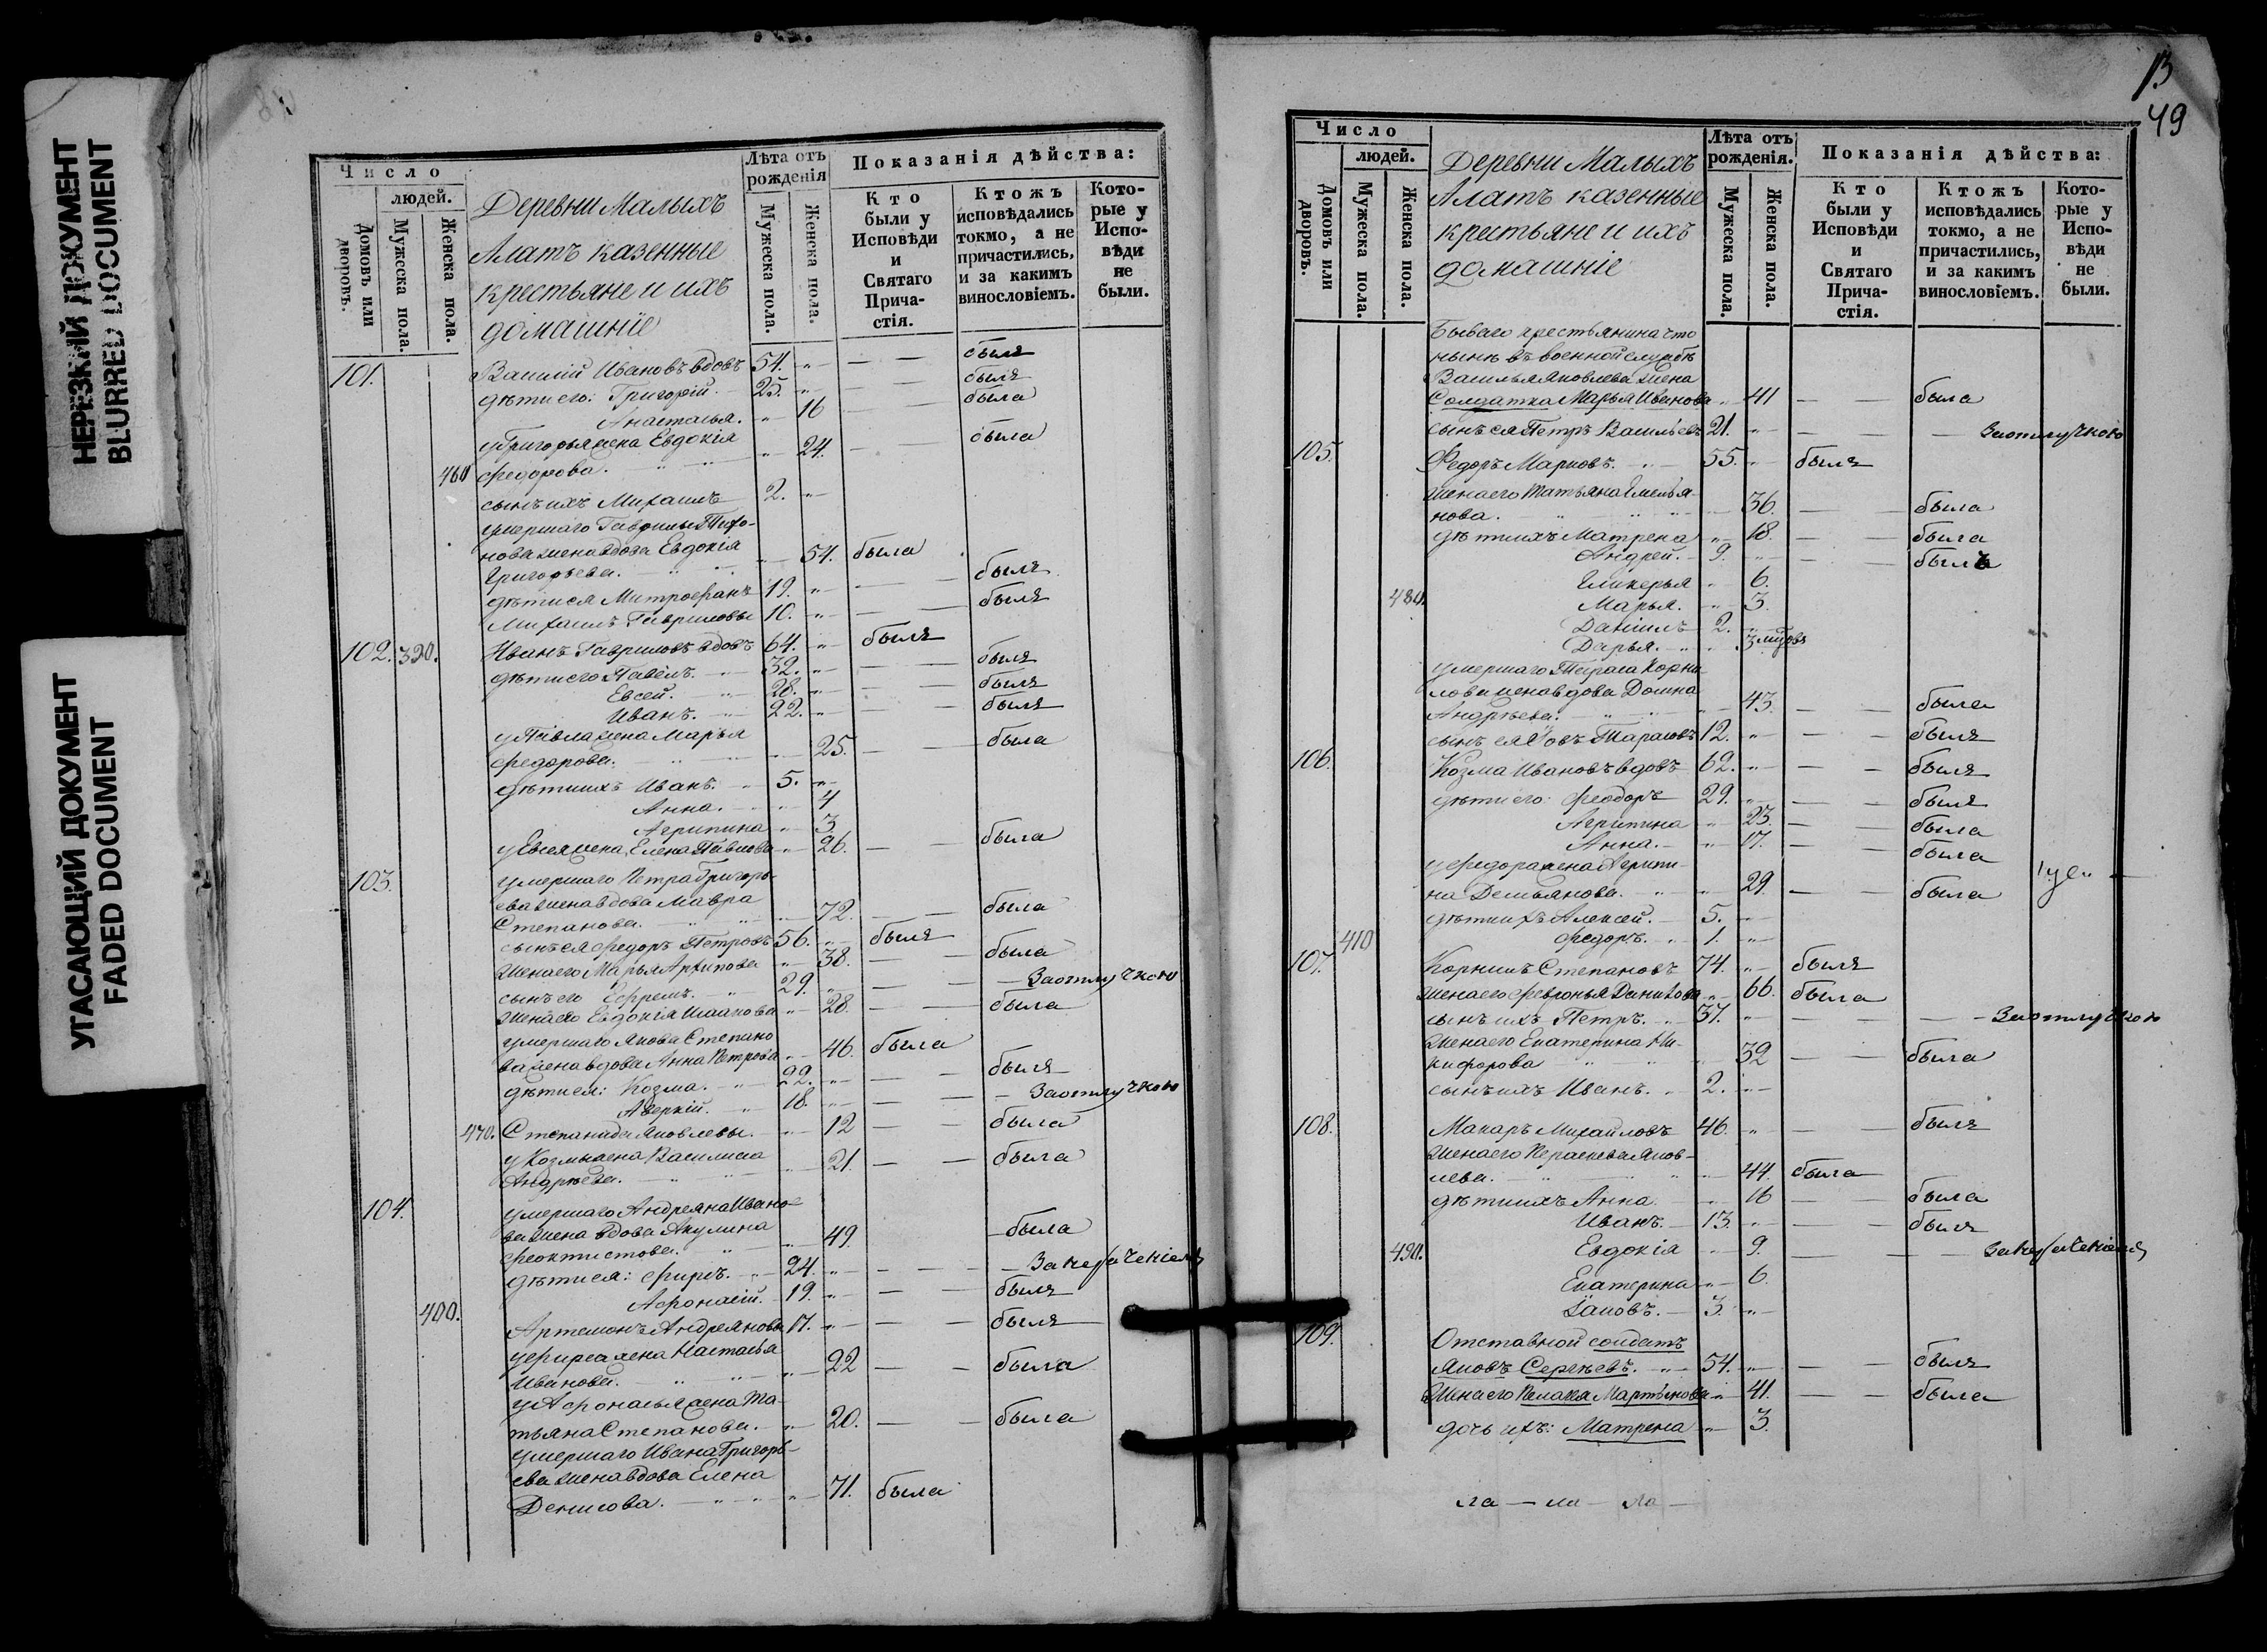 НЕРЕЗКИЙ ДОКУМЕНТ
BLURRED DOCUMENT
УГАСАЮЩИЙ ДОКУМЕНТ
FADED DOCUMENT
Число
людей.
Домовъ или дворовъ.
Мужеска пола.
Женска пола.
Деревни Малыхъ
Алатъ казенные
крестьяне и ихъ
домашніе
Лѣта отъ рожденія
Мужеска пола.
Женска пола.
Показанія дѣйства:
Кто были у Исповѣди и Святаго Причастія.
Ктожъ исповѣдались токмо, а не причастились, и за какимъ винословіемъ.
Которые у Исповѣди не были.
101. Василій Ивановъ вдовъ 54. былъ
дѣти его: Григорій. 25. былъ
Анастасья. 16 была
у Григорья жена Евдокія
460 Федорова. 24. была
сынъ ихъ Михаилъ 2.
умершаго Гаврилы Тихо-
нова жена вдова Евдокія
Григорьева. 54. была
дѣти ея Митрофанъ 19. былъ
Михаилъ Гавриловы 10. былъ
102. 390. Иванъ Гавриловъ вдовъ 64. былъ
дѣти его Павелъ. 32. былъ
Евсей. 28. былъ
Иванъ. 22. былъ
у Павла жена Марья
Федорова. 25. была
дѣти ихъ Иванъ. 5.
Анна. 4
Агрипина 3
у Евсея жена Елена Павлова 26. была
103. умершаго Петра Григорь-
ева жена вдова Мавра
Степанова. 72. была
сынъ ея Федоръ Петровъ 56. былъ
жена его Марья Архипова 38. была
сынъ его Ефремъ. 29. За отлучкою
жена его Евдокія 28. была
умершаго Якова Степано
ва жена вдова Анна Петрова 46. была
дѣти ея: Козма. 22. былъ
Аверкій. 18. За отлучкою
470. Степанида Яковлевы. 12 была
у Козмы жена Василиса
Андрѣева. 21. была
104. умершаго Андреяна Ивано-
ва жена вдова Акулина
Феоктистова. 49. была
дѣти ея: Фирсъ. 24. За нераченіемъ
Афонасій. 19. былъ
400. Артемонъ Андреяновы 17. былъ
у Фирса жена Настасья
Иванова. 22 была
у Афонасья жена Та-
тьяна Степанова. 20. была
умершаго Ивана Григорь-
ева жена вдова Елена
Денисова. 71. была
13
49
Число
людей.
Домовъ или дворовъ.
Мужеска пола.
Женска пола.
Деревни Малыхъ
Алатъ казенные
крестьяне и ихъ
домашніе
Лѣта отъ рожденія.
Мужеска пола.
Женска пола.
Показанія дѣйства:
Кто были у Исповѣди и Святаго Причастія.
Ктожъ исповѣдались токмо, а не причастились, и за какимъ винословіемъ.
Которые у Исповѣди не были.
Бываго крестьянина что
нынѣ въ военной службѣ
Василья Яковлева жена
Солдатка Марья Иванова 41 была
сынъ ея Петръ Васильевъ 21. За отлучкою
105. Федоръ Марковъ. 55. былъ
жена его Татьяна Емелья-
нова. 36. была
дѣти ихъ Матрена 18. была
Андрей. 9. былъ
Гликерья 6.
480. Марья. 3.
Даніилъ 2.
Дарья. 3 мѣсѧцовъ
умершаго Тараса Корни
лова жена вдова Домна
Андрѣева. 43. была
сынъ ея Іовъ Тарасовъ 12. былъ
106. Козма Ивановъ вдовъ 62. былъ
дѣти его: Феодоръ 29. былъ
Агрипина 23. была
Анна. 17. была
у Федора жена Агрипи-
на Демьянова. 29. была
дѣти ихъ Алексей. 5.
410 Федоръ. 1.
107. Корнилъ Степановъ 74. былъ
жена его Февронья Данилова 66. была
сынъ ихъ Петръ. 37. За отлучкою
жена его Екатерина Ни-
кифорова 32 была
сынъ ихъ Иванъ. 2.
108. Макаръ Михайловъ 46. былъ
жена его Параскева Яков-
лева. 44. была
дѣти ихъ Анна 16 была
Иванъ. 13. былъ
490. Евдокія 9. За нераченіемъ
Екатерина 6.
Іаковъ. 3.
109. Отставной солдатъ
Яковъ Сергѣевъ. 54. былъ
жена его Пелагея Мартынова 41. была
дочь ихъ: Матрена 3.
ла — ла — ла —